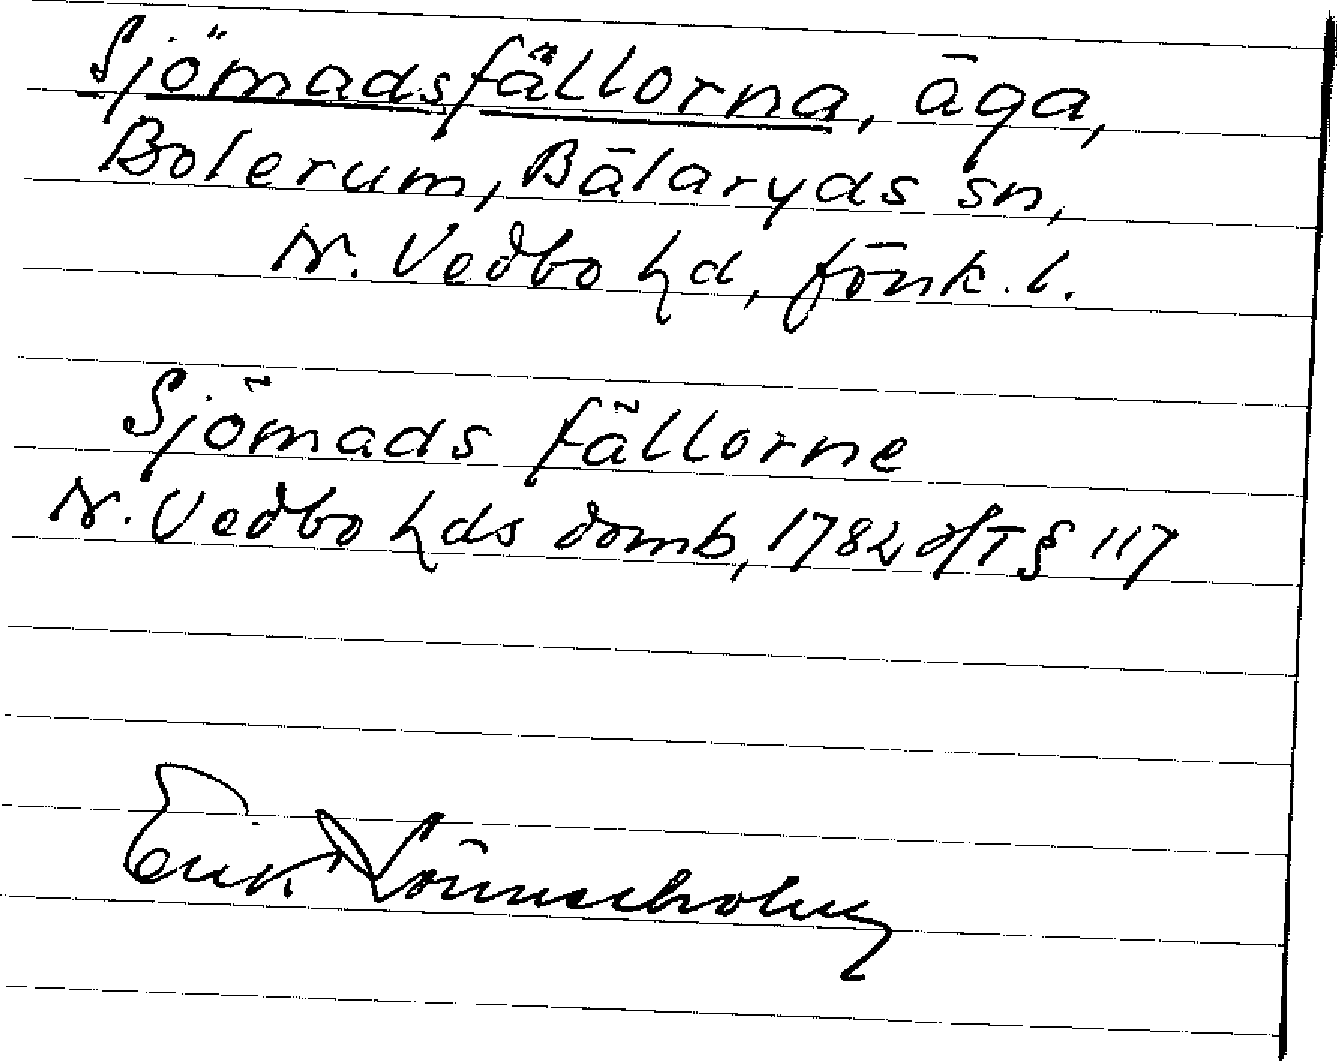 Sjömadsfällorna, äga,
Bolerum, Bälaryds sn,
N. Vedbo hd, Jönk. l.
Sjömads fällorne
N. Vedbo hds domb, 1782 § 117
Erik